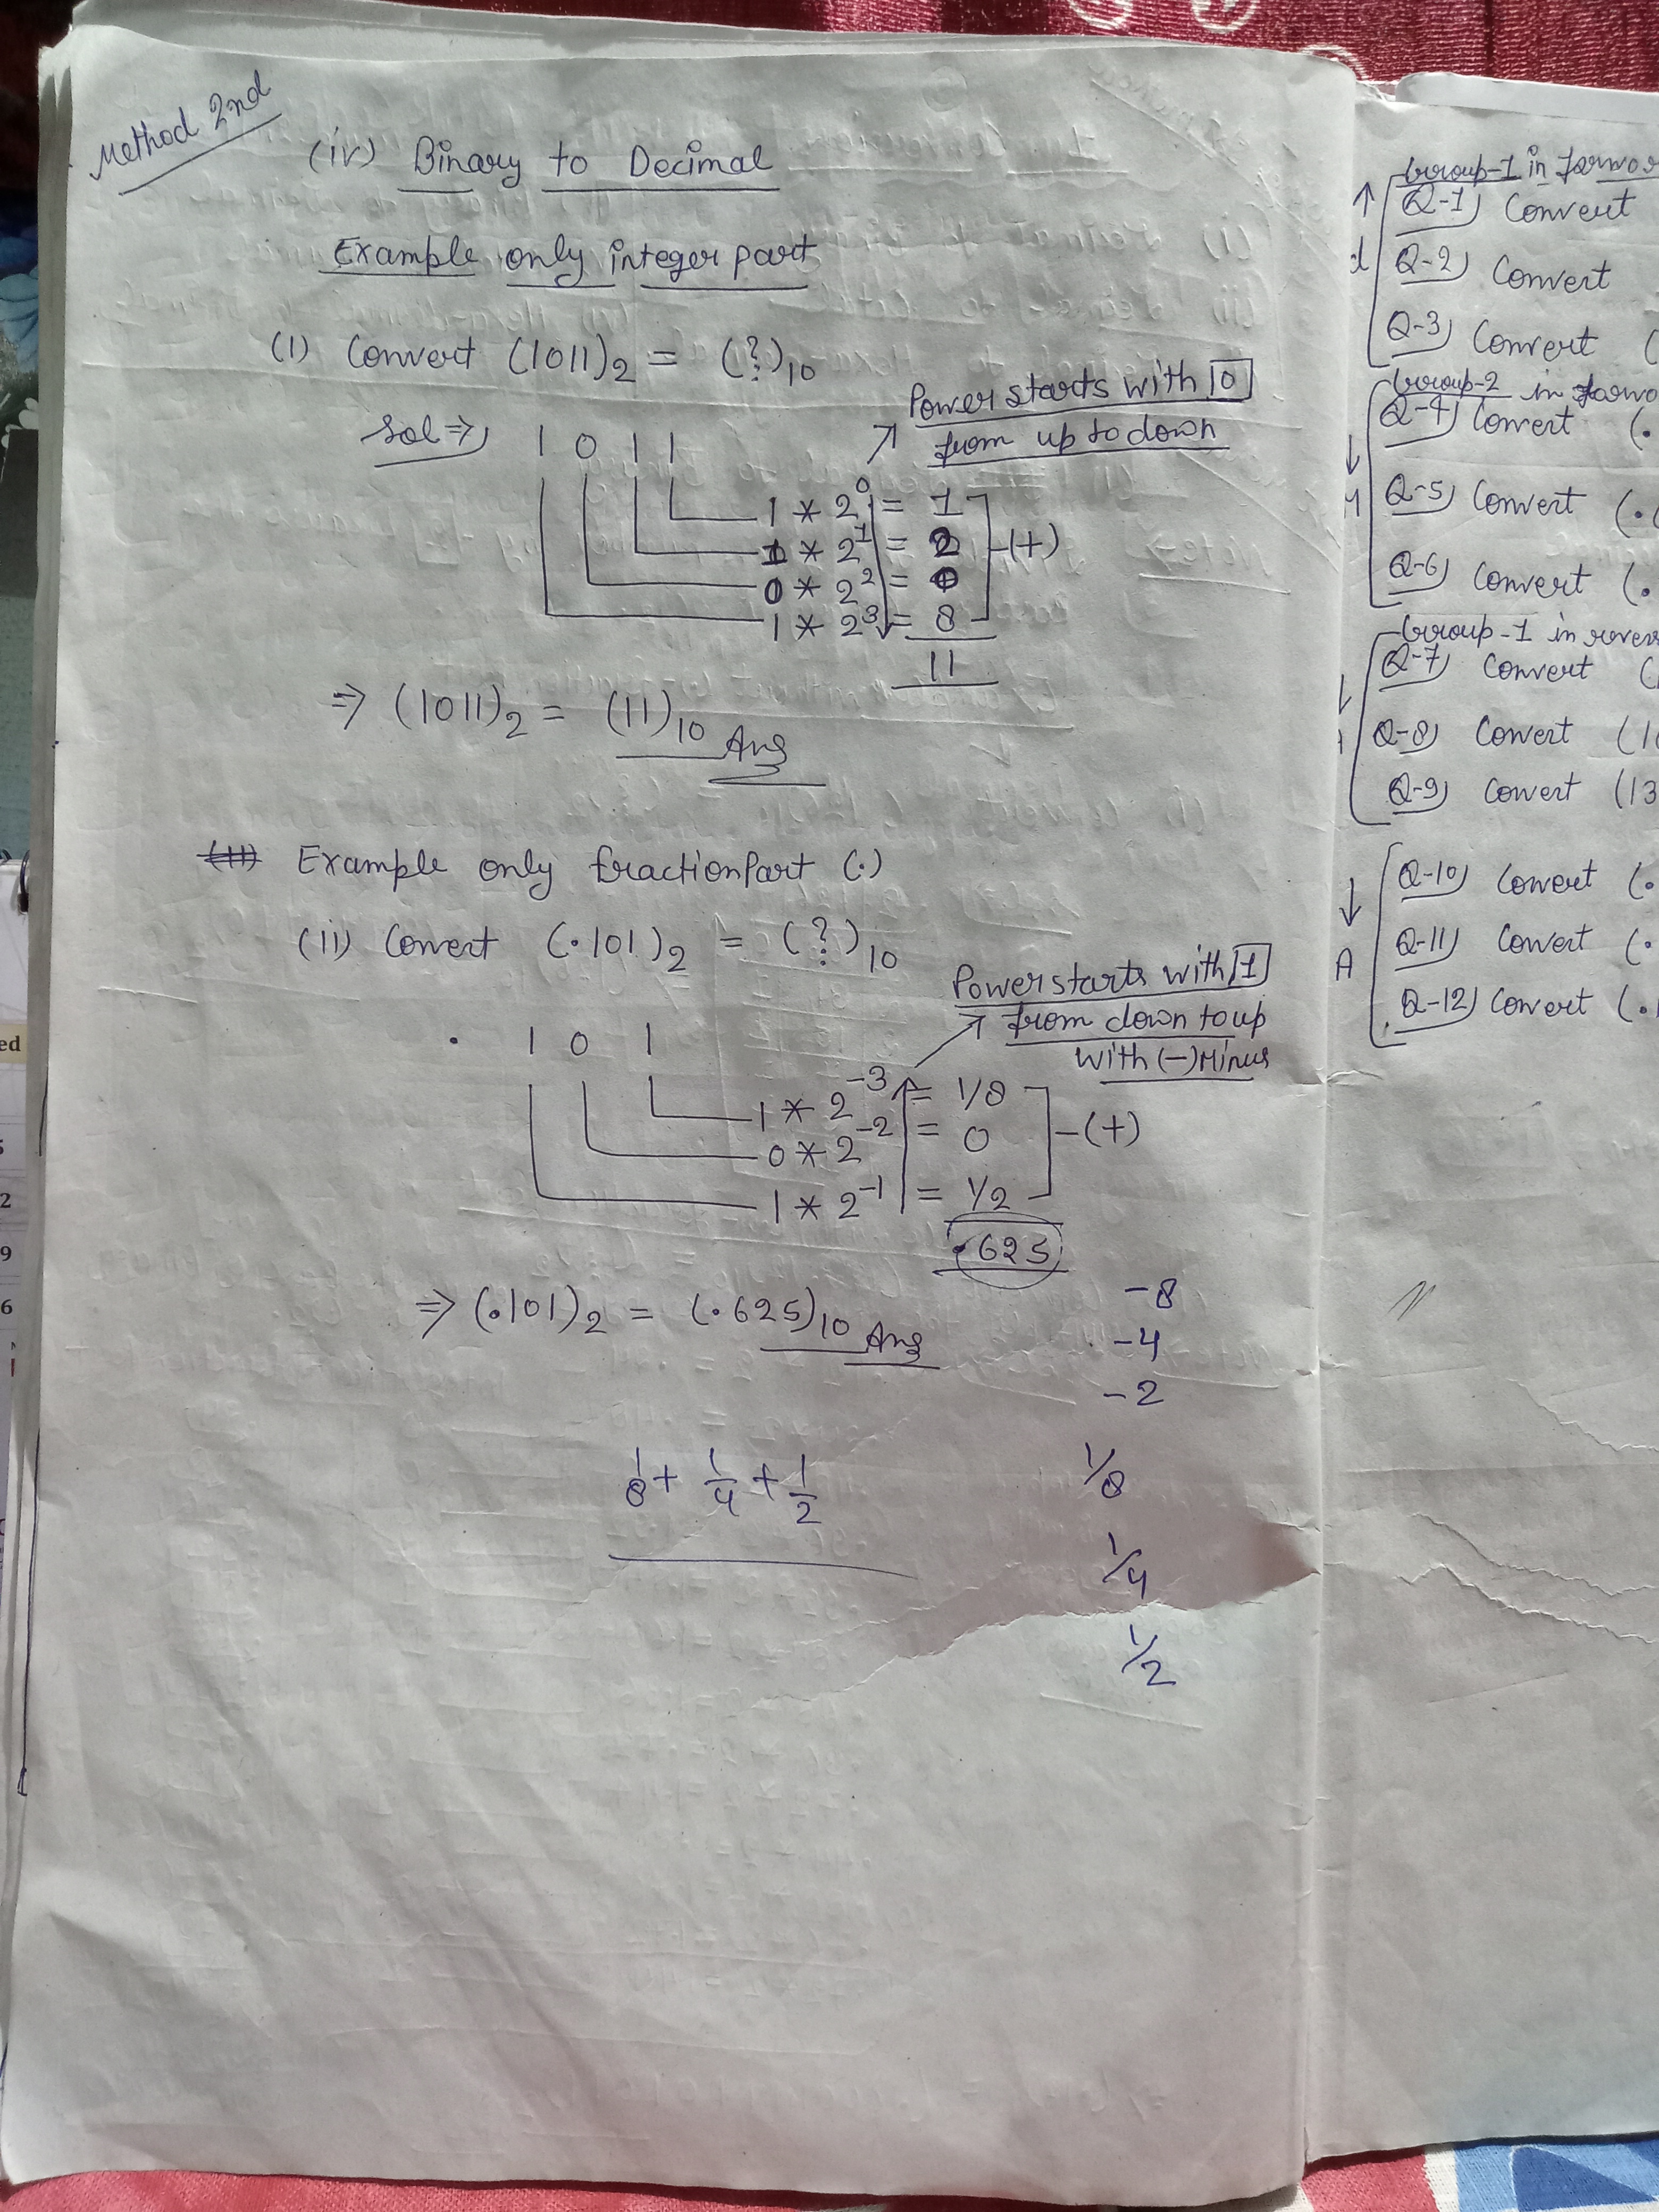 Method 2nd
(iv) Binary to Decimal
Example only integer part
(I) Convert (1011)2 = (?)10
Power starts with 0
from up to down
Sol ⇒) 1 0 1 1
1 * 2^0 = 1
1 * 2^1 = 2
0 * 2^2 = 0
1 * 2^3 = 8
-(+)
11
⇒ (1011)2 = (11)10 Ans
(II) Example only fractionPart (.)
(II) Convert (.101)2 = (?)10
Power starts with 1
from down to up
with (-) Minus
. 1 0 1
1 * 2^-3 = 1/8
0 * 2^-2 = 0
1 * 2^-1 = 1/2
-(+)
.625
⇒ (.101)2 = (.625)10 Ans
-8
-4
-2
1/8 + 1/4 + 1/2
1/8
1/4
1/2
Group-1 in
Q-1) Convert
Q-2) Convert
Q-3) Convert (
Group-2 in
Q-4) Convert (.
Q-5) Convert (.
Q-6) Convert (.
Group-1 in
Q-7) Convert (
Q-8) Convert (1
Q-9) Convert (13
Q-10) Convert (.
Q-11) Convert (.
A
Q-12) Convert (.
ed
2
9
6